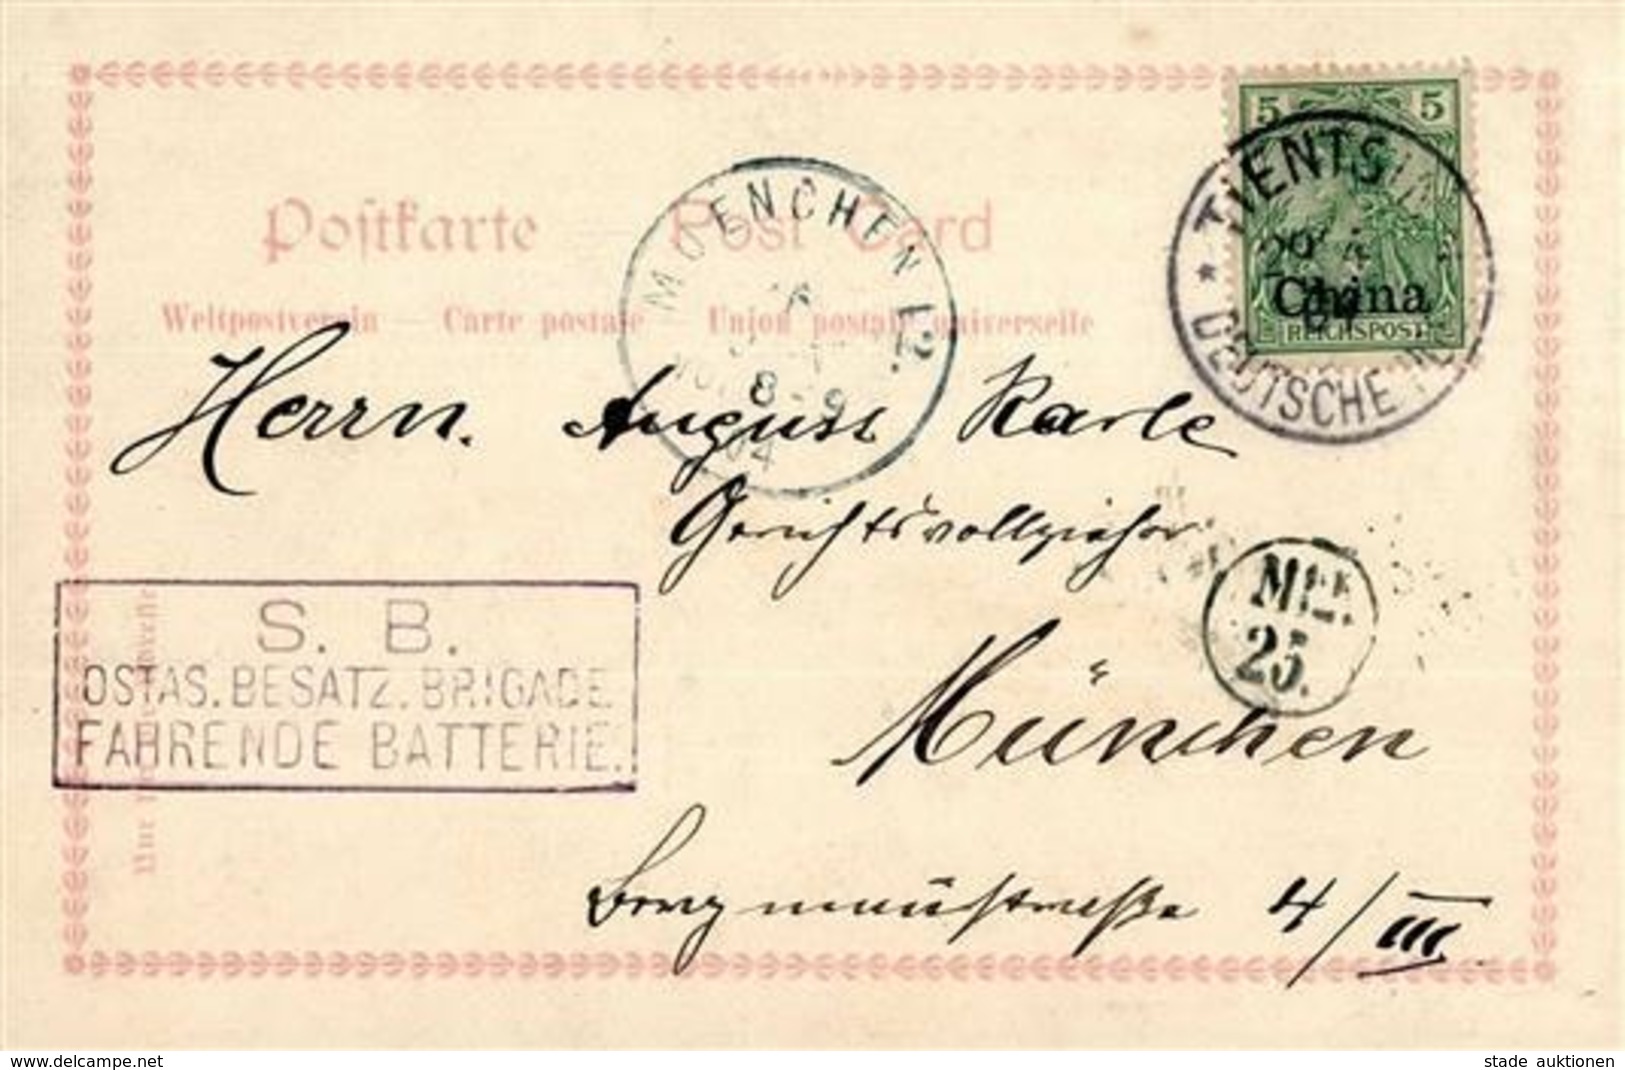 Postkarte — Post Card
Weltpostverein — Carte postale Union postale universelle
5 5
China
REICHSPOST
* TIENTSIN
29 4
04
DEUTSCHE
MUENCHEN 12.
8-9
04
Herrn. August Karle
Gerichtsvollzieher
München
Bergmannstraße 4/III.
S. B.
OSTAS. BESATZ. BRIGADE
FAHRENDE BATTERIE.
25.
Nur für die
delcampe.net
stade auktionen